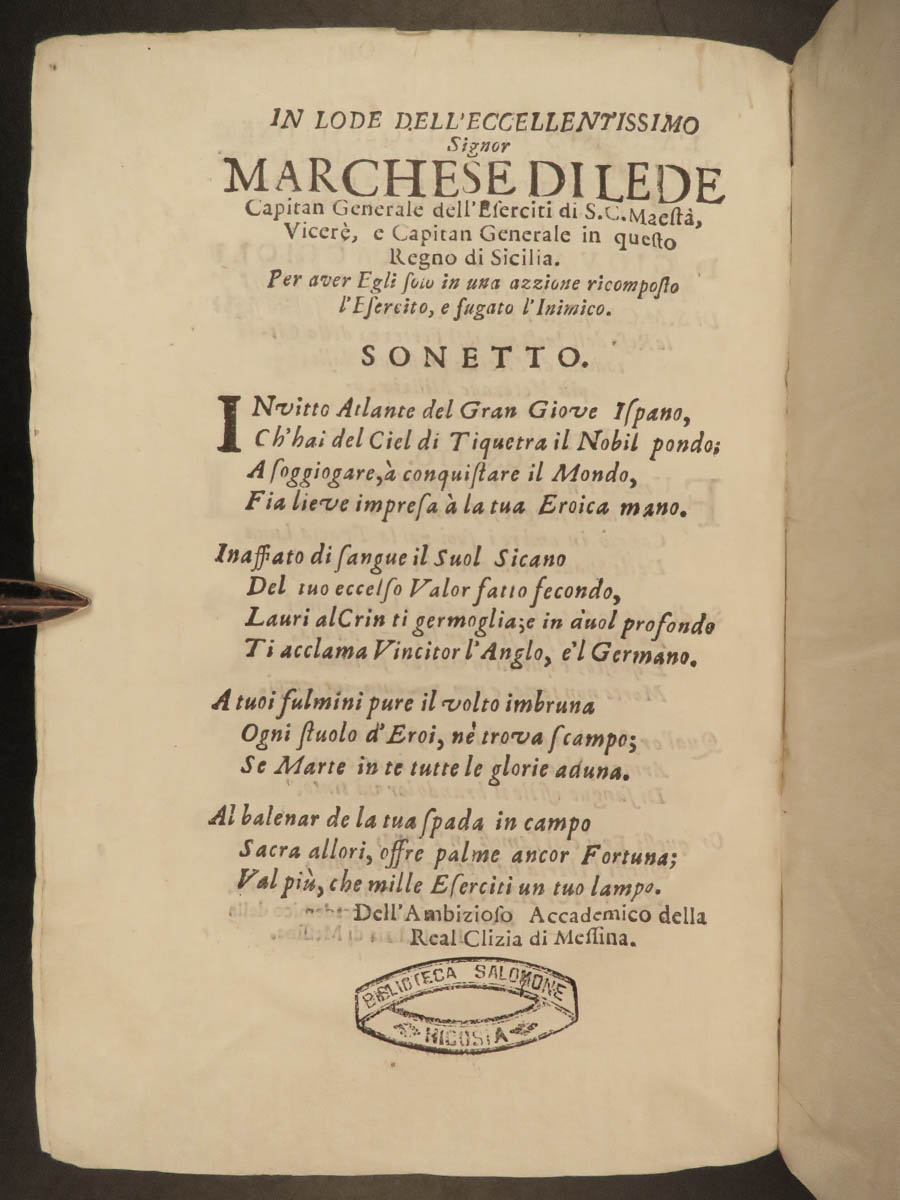 IN LODE DELL'ECCELLENTISSIMO
Signor
MARCHESE DI LEDE
Capitan Generale dell'Eſerciti di S.C.Maeſtà,
Vicerè, e Capitan Generale in queſto
Regno di Sicilia.
Per aver Egli ſolo in una azzione ricompoſto
l'Eſercito, e fugato l'Inimico.
SONETTO.
INvitto Atlante del Gran Giove Iſpano,
Ch'hai del Ciel di Tiquetra il Nobil pondo;
A ſoggiogare,à conquiſtare il Mondo,
Fia lieve impreſa à la tua Eroica mano.
Inaffiato di ſangue il Suol Sicano
Del tuo eccelſo Valor fatto fecondo,
Lauri alCrin ti germoglia;e in duol profondo
Ti acclama Vincitor l'Anglo, e'l Germano.
A tuoi fulmini pure il volto imbruna
Ogni ſtuolo d'Eroi, nè trova ſcampo;
Se Marte in te tutte le glorie aduna.
Al balenar de la tua ſpada in campo
Sacra allori, offre palme ancor Fortuna;
Val più, che mille Eſerciti un tuo lampo.
Dell'Ambizioſo Accademico della
Real Clizia di Meſſina.
BIBLIOTECA SALOMONE
NICOSIA